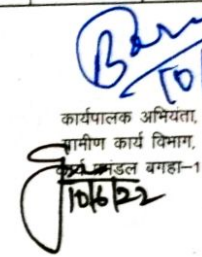 कार्यपालक अभियंता,
ग्रामीण कार्य विभाग,
कार्य प्रमंडल बगहा-1
10/6/22